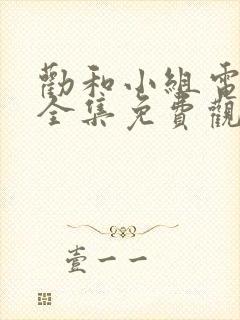 勸和小組電
全集免費觀
壹一一